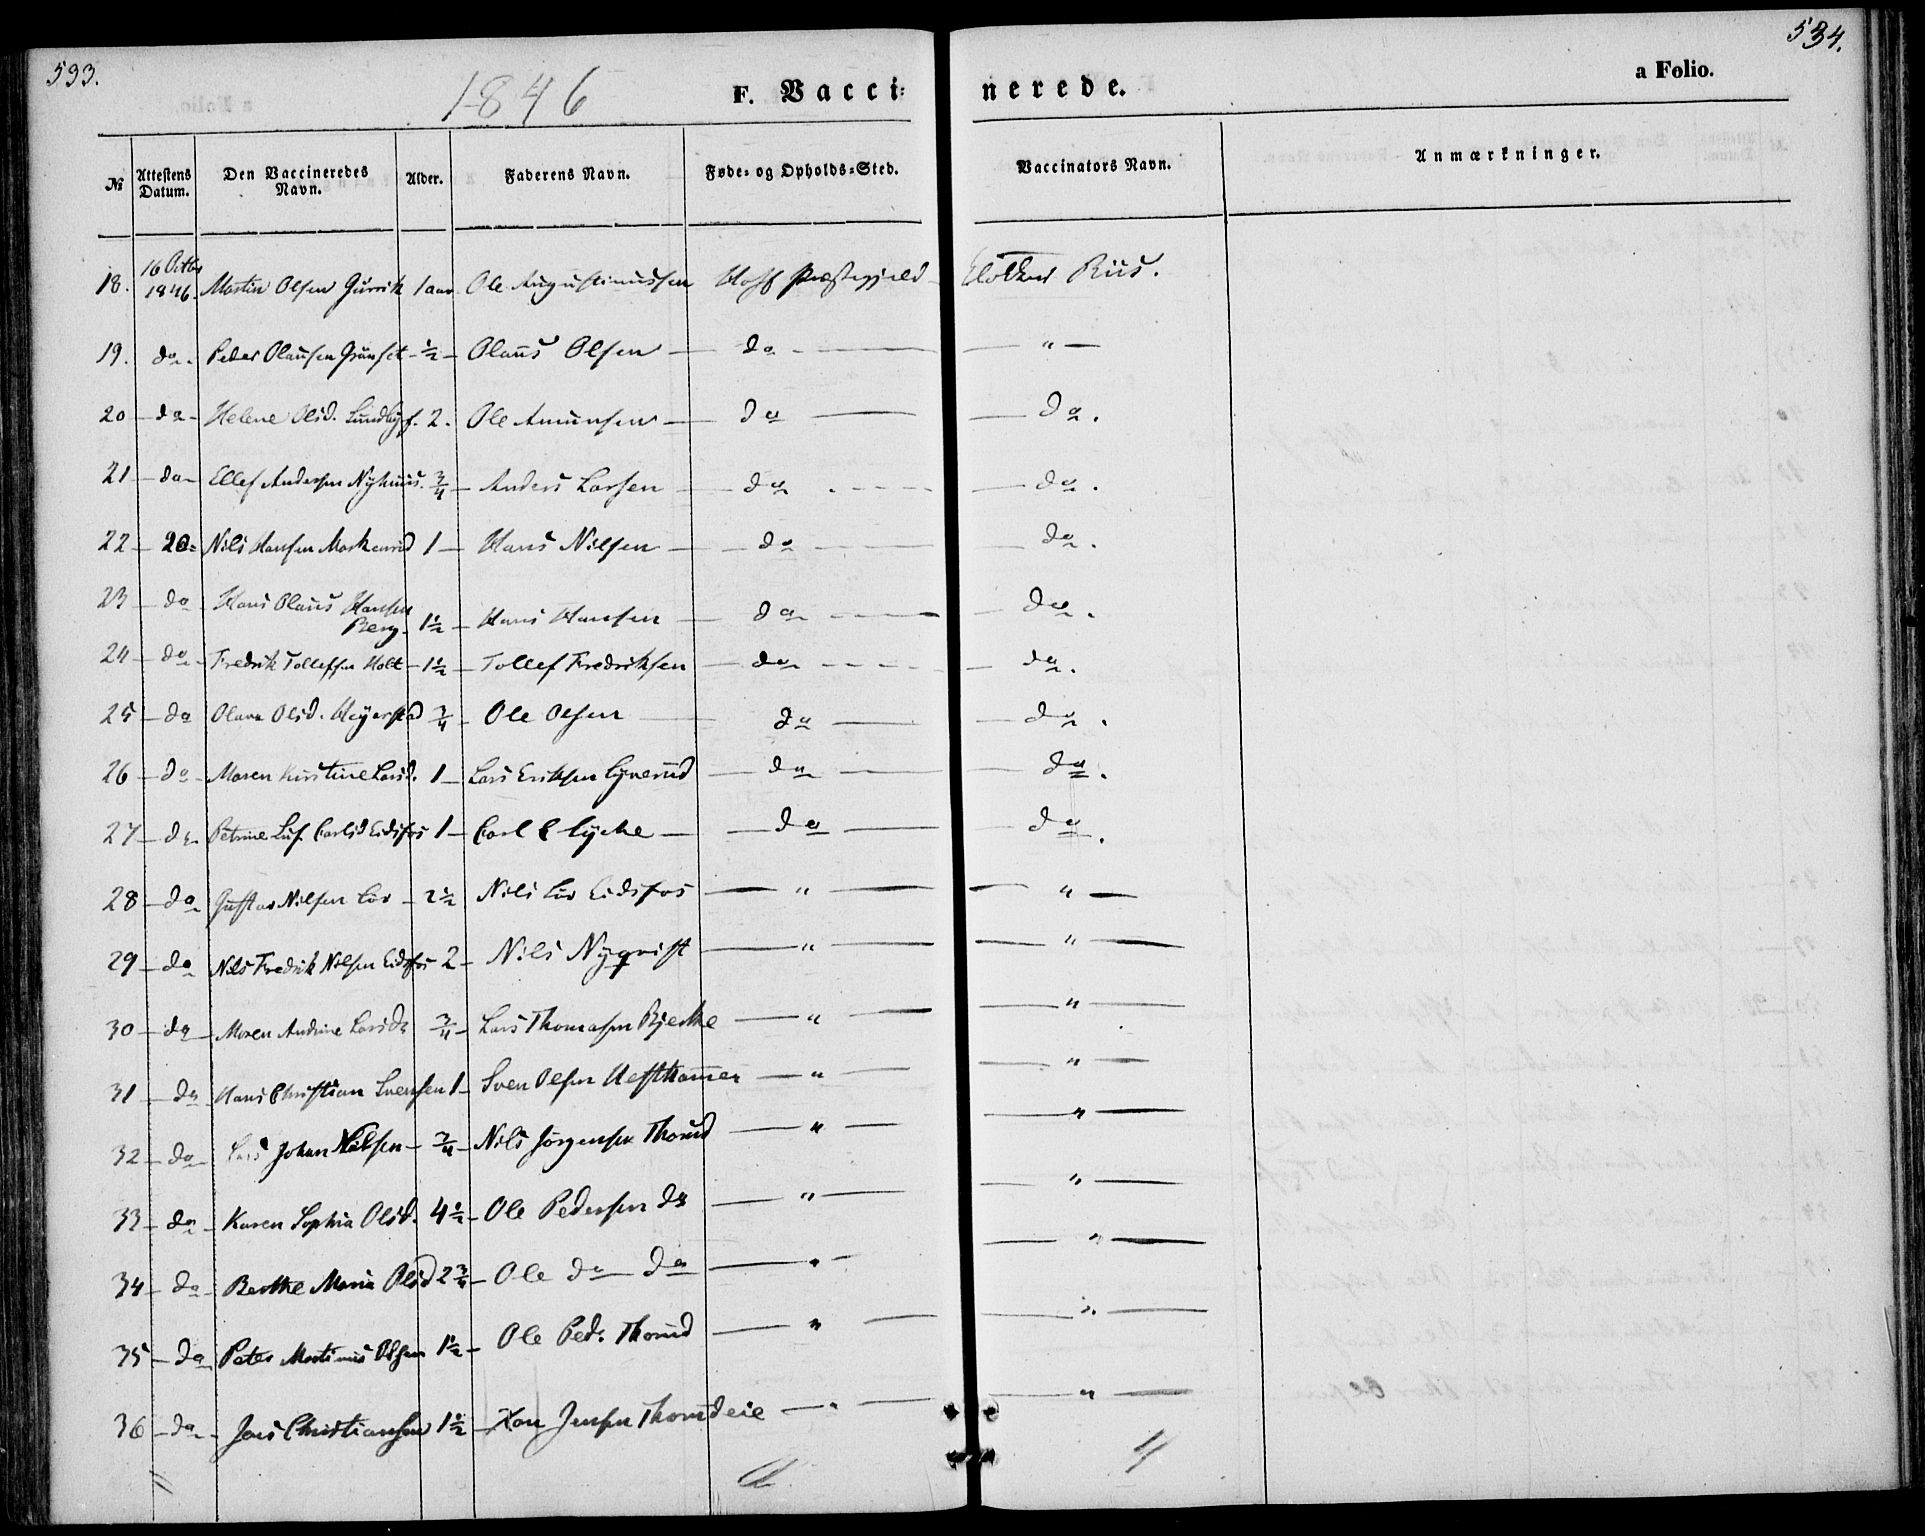 593.
534.
1846
F. Vacci-
nerede.
a Folio.
№ Attestens Datum. Den Vaccineredes Navn. Alder. Faderens Navn. Føde- og Opholds-Sted. Vaccinators Navn. Anmærkninger.
18. 16 Octbr 1846. Martin Olsen 1 aar. Ole Augustinussen Hoff Præstegjeld Klokker Riis.
19. do. Peder Olausen Grünset - ½ - Olaus Olsen - do - - " -
20 - do - Helene Olsd. 2. Ole Amunsen - do - - do.
21 - do - Ellef Andersen Nyhuus. ¾ - Anders Larsen - do - - do.
22 - do - Nils Hansen 1 - Hans Nilsen - do - - do.
23 - do - Hans Olaus Hansen Berg - 1½ - Hans Hansen - do - - do.
24 - do - Fredrik Tollefsen Holt - 1½ - Tollef Fredriksen - do - - do.
25 - do Olava Olsd. ¾ - Ole Olsen - do - - do.
26 - do - Maren Kirstine Larsd. 1 - Lars Eriksen - do - - do.
27 - do Petrine Carlsd Eidsfos 1 - Carl - do - - do.
28 - do Gustav Nilsen - 2½ Nils Eidsfos - " - - " -
29 - do Nils Fredrik Nilsen Eidsfos 2 - Nils Nyqvist - " - - " -
30 - do Maren Andrine Larsdr ¾ - Lars Thomasen Bjerke - " - - " -
31 - do Hans Christian Svensen 1 - Sven Olsen - " - - " -
32 - do Lars Johan Nilsen - ¾ - Nils Jörgensen Thorud - " - - " -
33 - do - Karen Sophia Olsd. 4½ - Ole Pedersen do - " - - " -
34 - do - Berthe Maria Olsd 2¾ - Ole do do - " - - " -
35 - do Peter Martinus Olsen 1½ - Ole Peds. Thorud - " - - " -
36 - do - Christiansen 1½ - Jensen Thorudeie - " - - " -